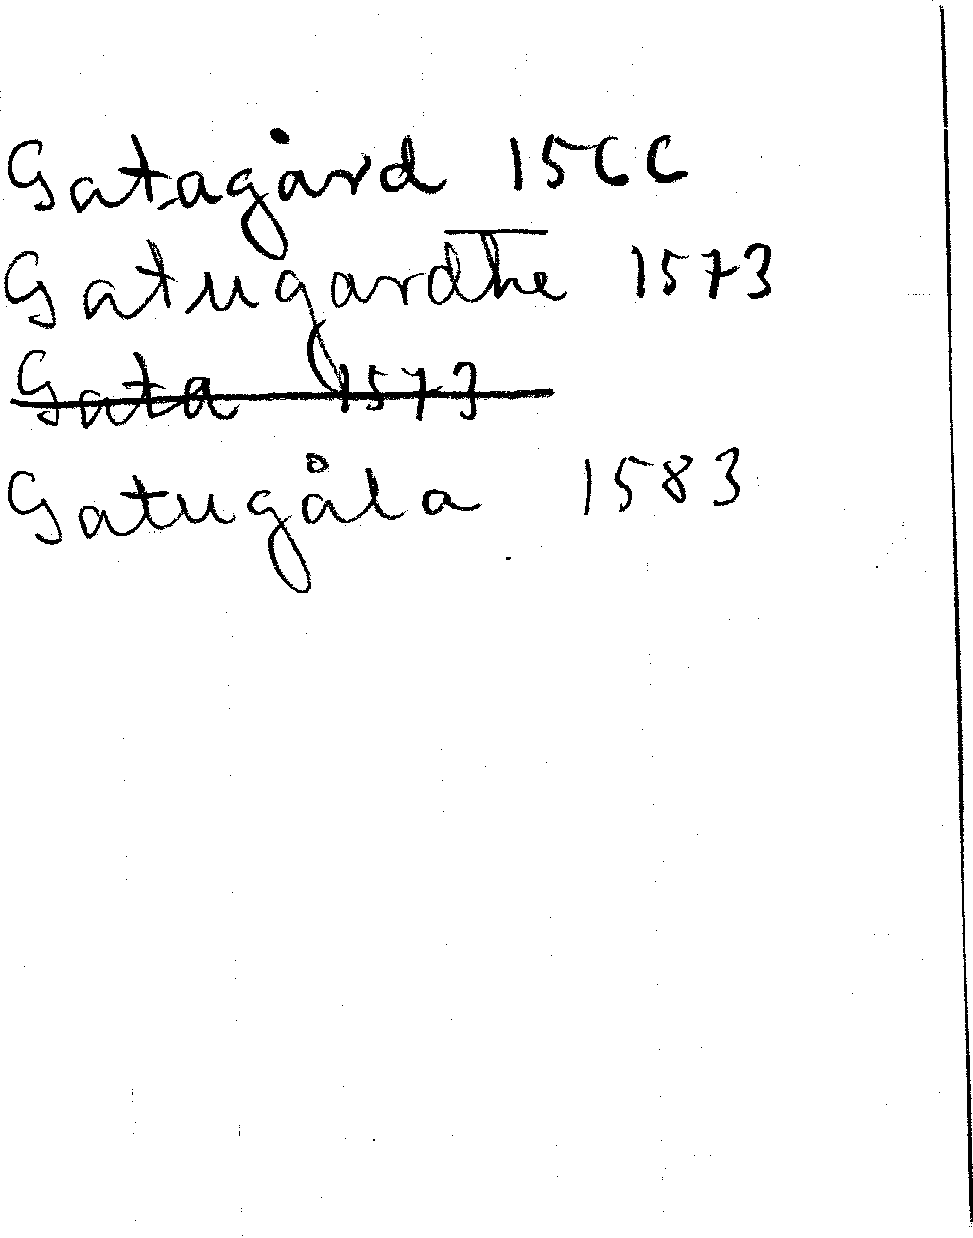 Gatagård 1566
Gatugardhe 1573
Gata 1573
Gatugåla 1583